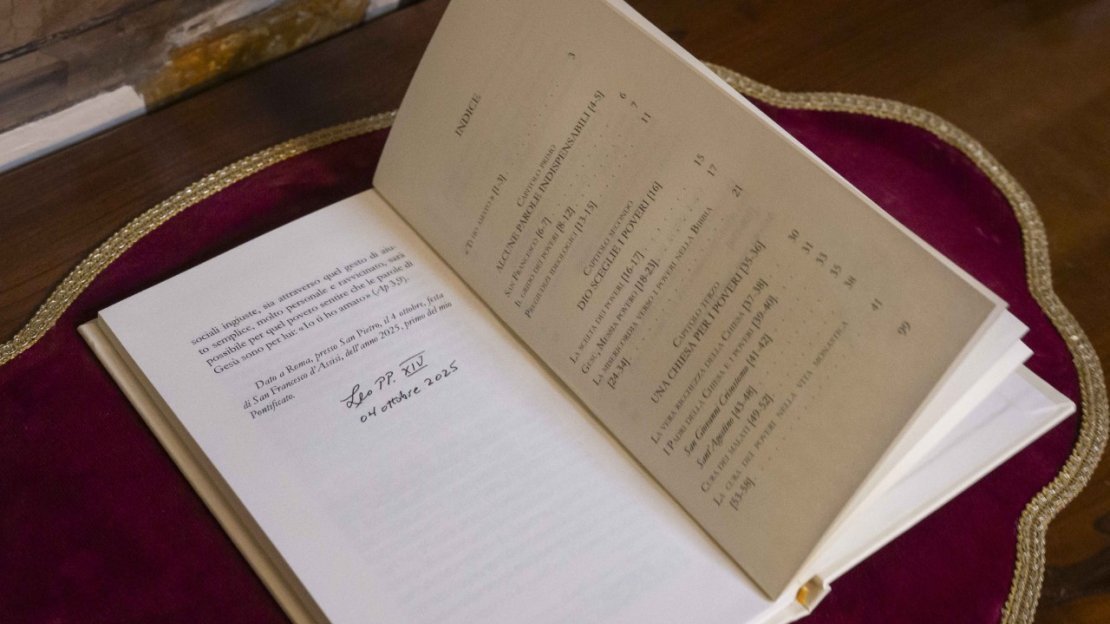 sociali ingiuste, sia attraverso quel gesto di aiu-
to semplice, molto personale e ravvicinato, sarà
possibile per quel povero sentire che le parole di
Gesù sono per lui: «Io ti ho amato» (Ap 3,9).
Dato a Roma, presso San Pietro, il 4 ottobre, festa
di San Francesco d'Assisi, dell'anno 2025, primo del mio
Pontificato.
Leo PP. XIV
04 ottobre 2025
INDICE
«Ti ho amato» [1-3] 3
Capitolo primo
ALCUNE PAROLE INDISPENSABILI [4-5]
San Francesco [6-7] 6
Il grido dei poveri [8-12] 7
Pregiudizi ideologici [13-15] 11
Capitolo secondo
DIO SCEGLIE I POVERI [16]
La scelta dei poveri [16-17] 15
Gesù, Messia povero [18-23] 17
La misericordia verso i poveri nella Bibbia
[24-34] 21
Capitolo terzo
UNA CHIESA PER I POVERI [35-36]
La vera ricchezza della Chiesa [37-38] 30
I Padri della Chiesa e i poveri [39-40] 31
San Giovanni Crisostomo [41-42] 33
Sant'Agostino [43-48] 35
Cura dei malati [49-52] 38
La cura dei poveri nella vita monastica
[53-58] 41
99